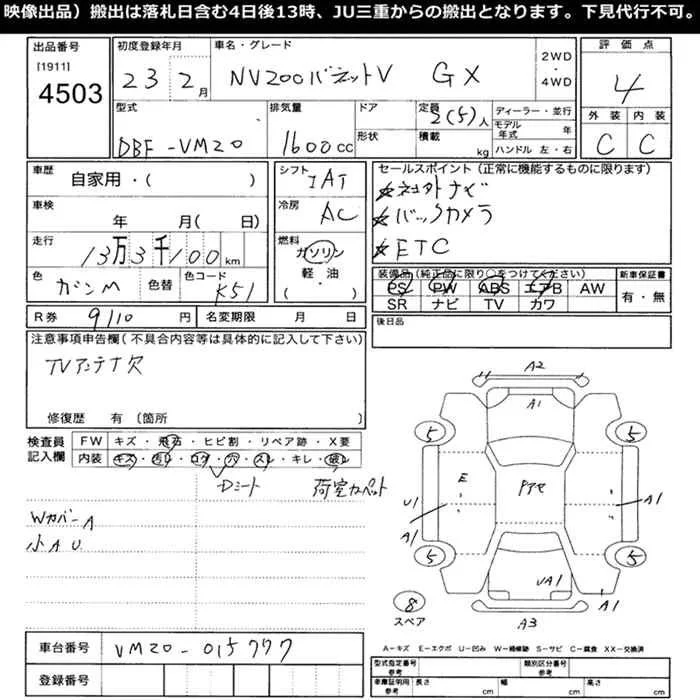 映像出品）搬出は落札日含む4日後13時、JU三重からの搬出となります。下見代行不可。
出品番号 初度登録年月 車名・グレード 2WD・4WD 評価点
[1911]
4503 23年 2月 NV200バネットV GX 4
型式 排気量 ドア 定員 2(5)人 ディーラー・並行
モデル年式 年 外装 内装
DBF-VM20 1600cc 形状 積載 kg ハンドル 左・右 C C
車歴 自家用・( ) シフト IAT セールスポイント (正常に機能するものに限ります)
☆ネ土外ナビ
車検 年 月( 日) 冷房 AC ☆バックカメラ
走行 13万3千100km 燃料 ガソリン ☆ETC
軽・油
・( )
色 ガンM 色替 色コード K51 装備品 (純正品に限り○をつけてください) 新車保証書
PS PW ABS エアB AW 有・無
SR ナビ TV カワ
R券 9110円 名変期限 月 日 後日品
注意事項申告欄(不具合内容等は具体的に記入して下さい)
TVアンテナ欠
修復歴 有 〔箇所 〕
検査員記入欄 FW キズ・飛石・ヒビ割・リペア跡・X要
内装 キズ・汚れ・コゲ・穴・スレ・キレ・破レ
Dシート 荷室カーペット
WカバーA
小AU
A2
A1
5 5
E アアセ
U1 A1
A1
5 5
UA1 A1
8
スペア A3
A-キズ E-エクボ U-凹み W-補修跡 S-サビ C-腐食 XX-交換済
車台番号 VM20-015777 型式指定番号 参考 類別区分番号 参考
登録番号 車庫証明用 参考 長さ cm 幅 cm 高さ cm